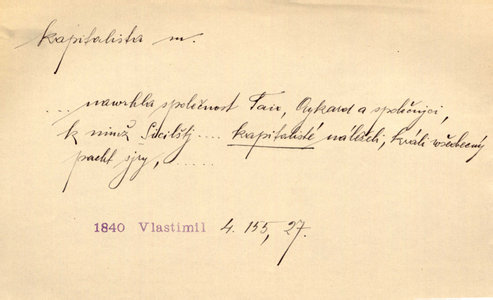 kapitalista m.
.... navrhla společnost Taix, Aykard a společníci,
k nimž Sicilští .... kapitalisté náleželi, králi všeobecný
pacht síry, ......
1840 Vlastimil 4. 155, 27.